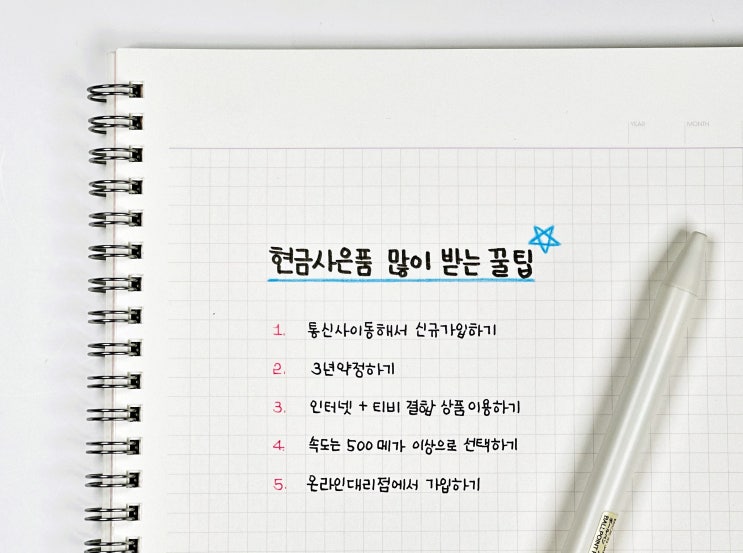 YEAR
MONTH
현금사은품 많이 받는 꿀팁
1. 통신사이동해서 신규가입하기
2. 3년약정하기
3. 인터넷 + 티비 결합 상품이용하기
4. 속도는 500메가 이상으로 선택하기
5. 온라인대리점에서 가입하기
BALLPOINT